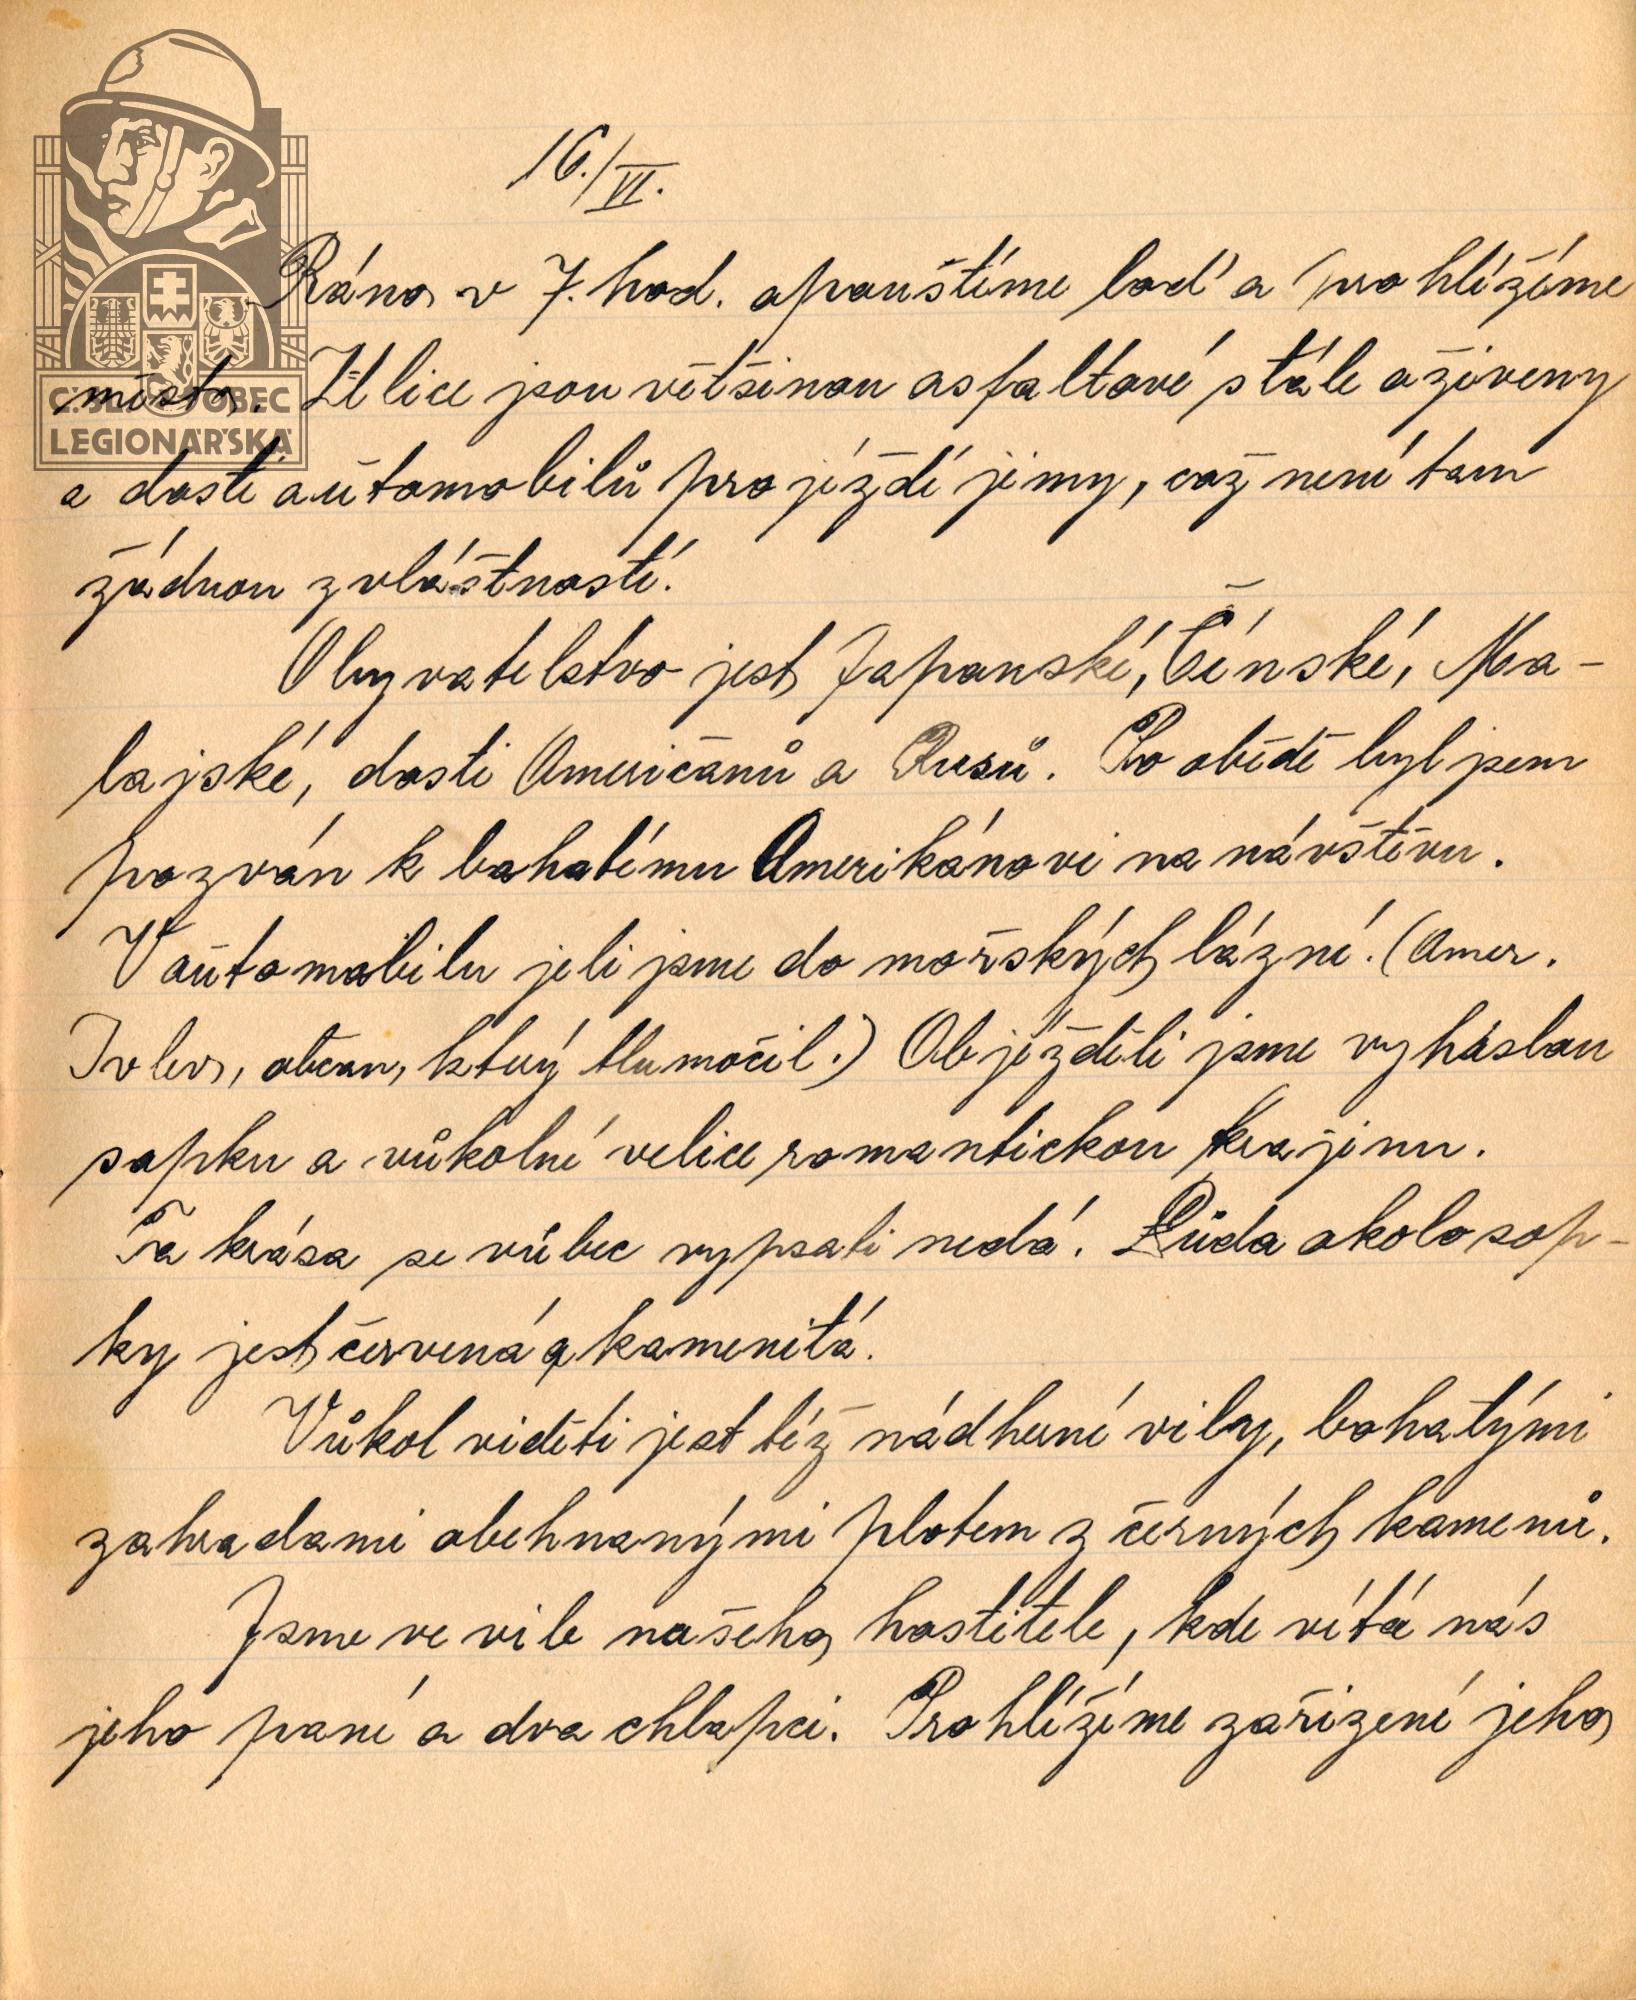 16./VI.
Ráno v 7. hod. opouštíme loď a prohlížíme
město. Ulice jsou většinou asfaltové stále oživeny
a dosti automobilů projíždí jimy, což není tam
žádnou zvláštností.
Obyvatelstvo jest Japanské, Čínské, Ma-
lajské, dosti Američanů a Rusů. Po obědě byl jsem
pozván k bohatému Amerikánovi na návštěvu.
V automobilu jeli jsme do mořských lázní. (Amer.
občan, který tlumočil.) Objížděli jsme vyhaslou
sopku a vůkolní velice romantickou krajinu.
Ta krása se vůbec vypsati nedá. Půda okolo sop-
ky jest červená a kamenitá.
Vůkol viděti jest též nádherné vily, bohatými
zahradami obehnanými plotem z černých kamenů.
Jsme ve vile našeho hostitele, kde vítá nás
jeho paní a dva chlapci. Prohlížíme zařízení jeho
Č.SL. OBEC
LEGIONÁŘSKÁ